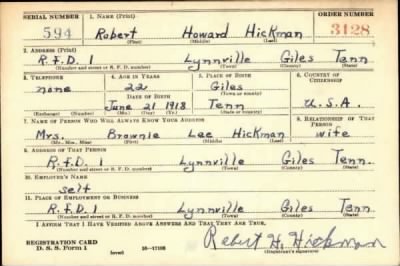 SERIAL NUMBER 1. NAME (Print) ORDER NUMBER
594 Robert Howard Hickman 3128
(First) (Middle) (Last)
2. ADDRESS (Print)
R.F.D. 1 Lynnville Giles Tenn
(Number and street or R. F. D. number) (Town) (County) (State)
3. TELEPHONE 4. AGE IN YEARS 5. PLACE OF BIRTH 6. COUNTRY OF CITIZENSHIP
none 22 Giles
DATE OF BIRTH (Town or county)
June 21 1918 Tenn U.S.A.
(Exchange) (Number) (Mo.) (Day) (Yr.) (State or country)
7. NAME OF PERSON WHO WILL ALWAYS KNOW YOUR ADDRESS 8. RELATIONSHIP OF THAT PERSON
Mrs. Brownie Lee Hickman wife
(Mr., Mrs., Miss) (First) (Middle) (Last)
9. ADDRESS OF THAT PERSON
R.f.D. 1 Lynnville Giles Tenn.
(Number and street or R. F. D. number) (Town) (County) (State)
10. EMPLOYER'S NAME
self
11. PLACE OF EMPLOYMENT OR BUSINESS
R.f.D. 1 Lynnville Giles Tenn.
(Number and street or R. F. D. number) (Town) (County) (State)
I AFFIRM THAT I HAVE VERIFIED ABOVE ANSWERS AND THAT THEY ARE TRUE.
REGISTRATION CARD
D. S. S. Form 1 (over) 16—17105 Robert H. Hickman
(Registrant's signature)